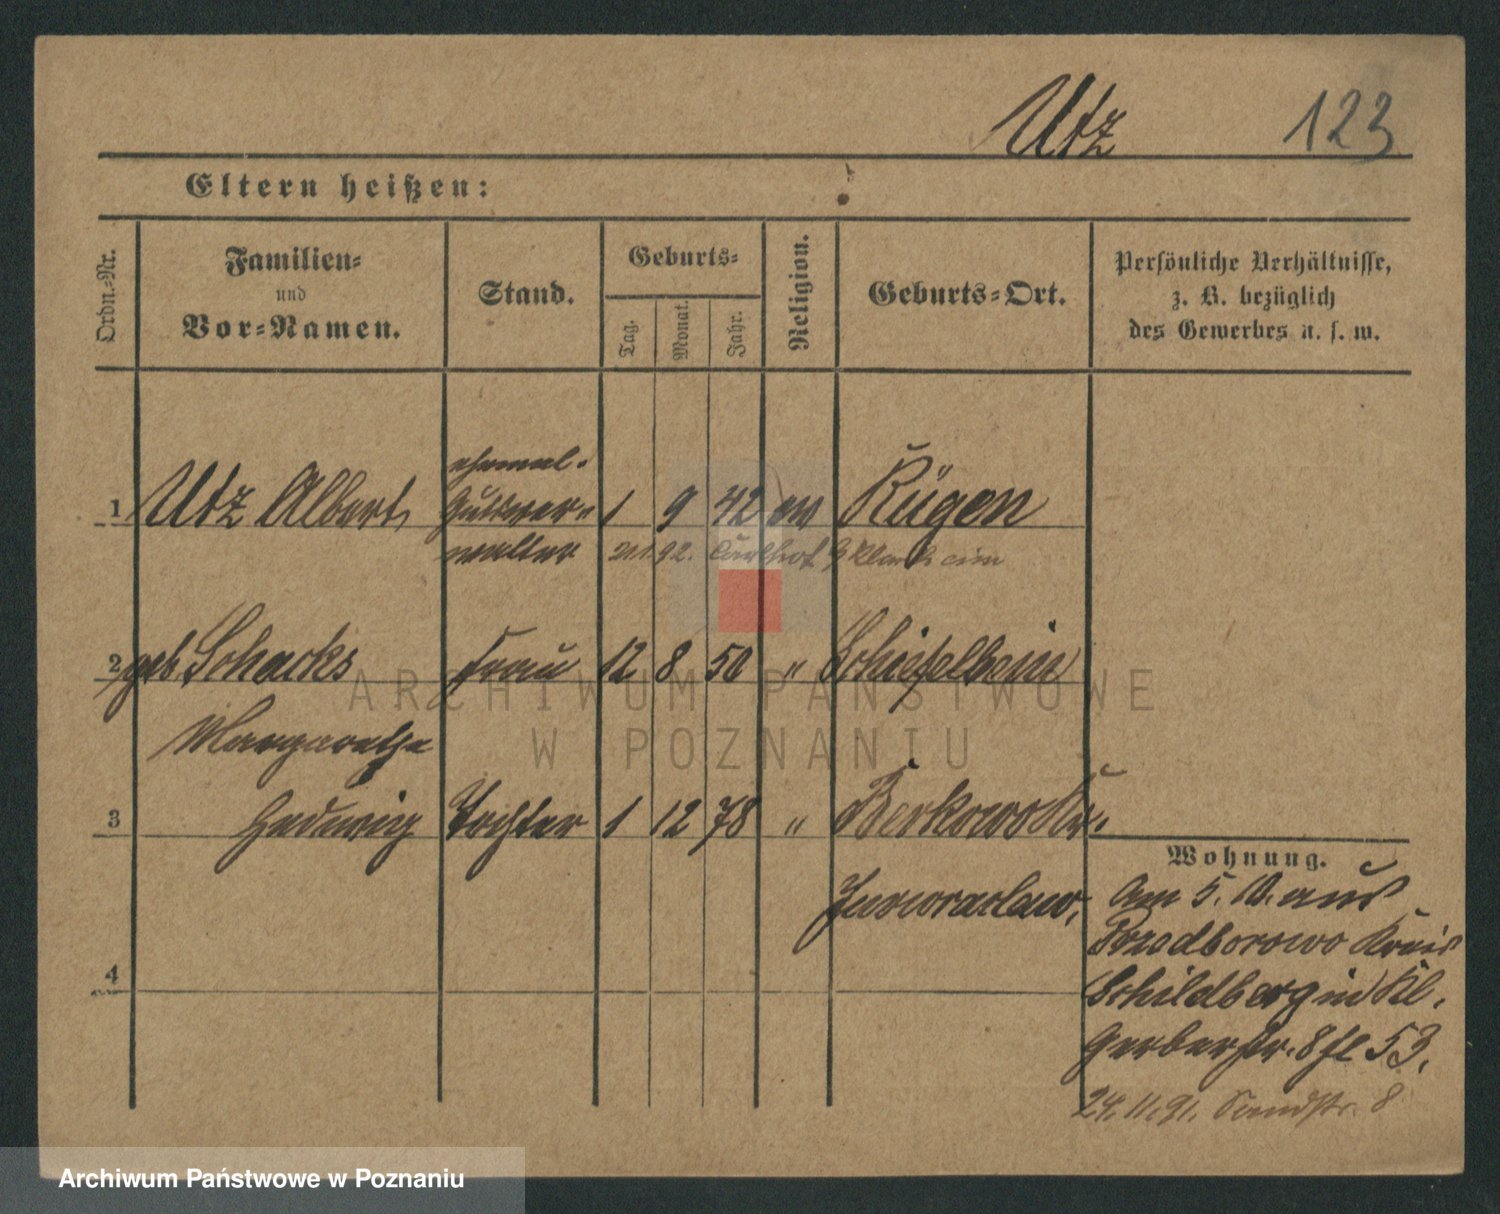 Utz 123
Eltern heißen:
Ordn.-Nr.
Familien-
und
Vor-Namen.
Stand.
Geburts-
Tag.
Monat.
Jahr.
Religion.
Geburts-Ort.
Persönliche Verhältnisse,
z. B. bezüglich
des Gewerbes u. s. w.
ehemal.
1 Utz Albert Gutsver- 1 9 42 ev Rügen
walter 92.
2 geb. Schacks Frau 12 8 50 "
Margarethe
3 Hedwig Tochter 1 12 78 " Berkowo Kr.
Inowraclaw,
4
Wohnung.
Am 5. 10. aus
Przedborowo Kreis
Schildberg in Kl.
Gerberstr. 8 fl 53.
24. 11. 91. Sandstr. 8
ARCHIWUM PAŃSTWOWE
W POZNANIU
Archiwum Państwowe w Poznaniu